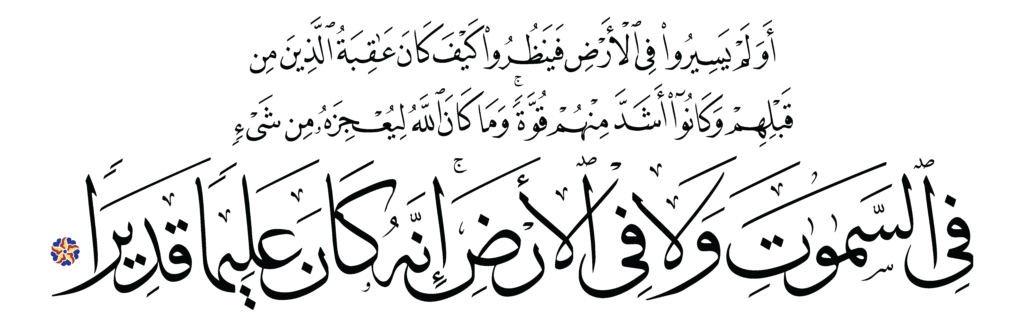 أَوَلَمْ يَسِيرُوا۟ فِى ٱلْأَرْضِ فَيَنظُرُوا۟ كَيْفَ كَانَ عَٰقِبَةُ ٱلَّذِينَ مِن
قَبْلِهِمْ وَكَانُوٓا۟ أَشَدَّ مِنْهُمْ قُوَّةً ۚ وَمَا كَانَ ٱللَّهُ لِيُعْجِزَهُۥ مِن شَىْءٍ
فِى ٱلسَّمَٰوَٰتِ وَلَا فِى ٱلْأَرْضِ ۚ إِنَّهُۥ كَانَ عَلِيمًا قَدِيرًا